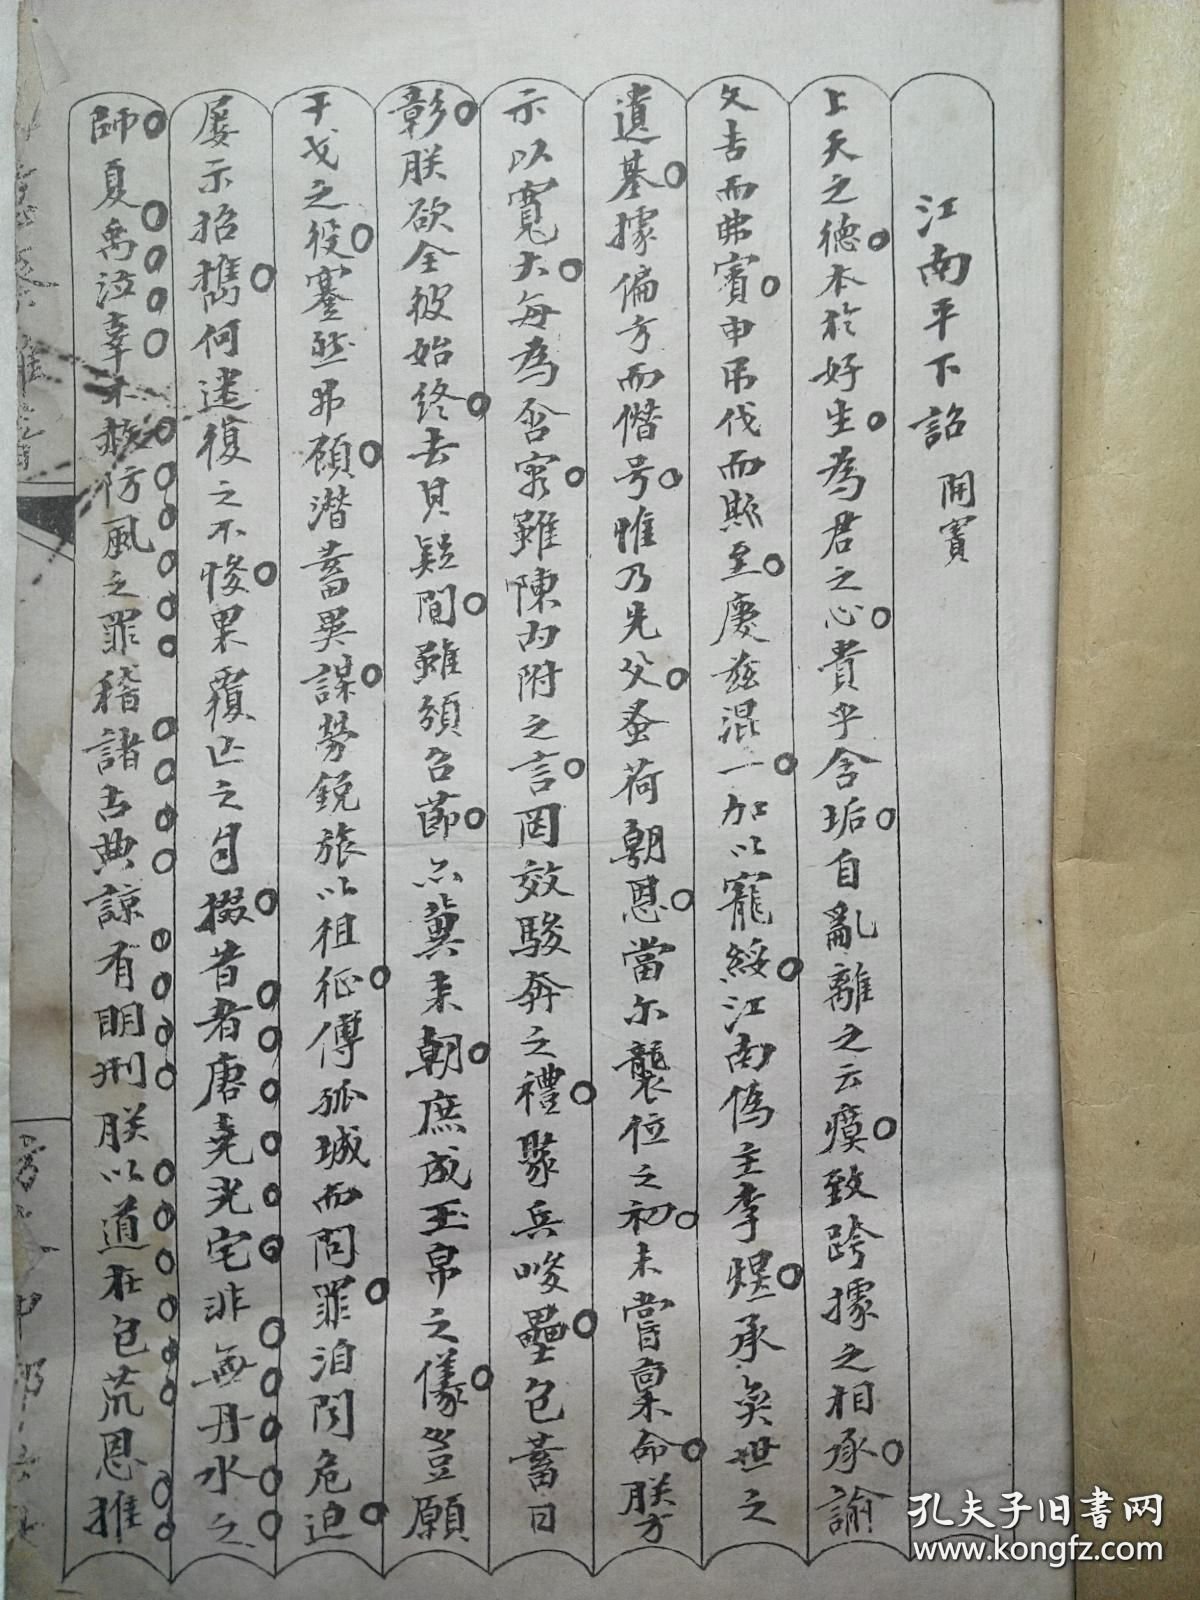 江南平下詔 開寶
上天之德本於好生為君之心貴乎含垢自亂離之云瘼致跨據之相承諭
文告而弗賓申吊伐而斯至慶茲混一加以寵綏江南偽主李煜承奕世之
遺基據偏方而僭号惟乃先父蚤荷朝恩當尔襲位之初未嘗稟命朕方
示以寬大每為含容雖陳內附之言罔效駿奔之禮聚兵峻壘包蓄日
彰朕欲全彼始終去其疑間雖頒召節亦冀来朝庶成玉帛之儀豈願
干戈之役蹇然弗顧潜蓄異謀勞銳旅以徂征傅孤城而問罪洎聞危迫
屡示招携何迷復之不悛果覆亡之自掇昔者唐堯光宅非無丹水之
師夏禹泣辜不赦防風之罪稽諸古典諒有明刑朕以道在包荒恩推
孔夫子旧书网
www.kongfz.com